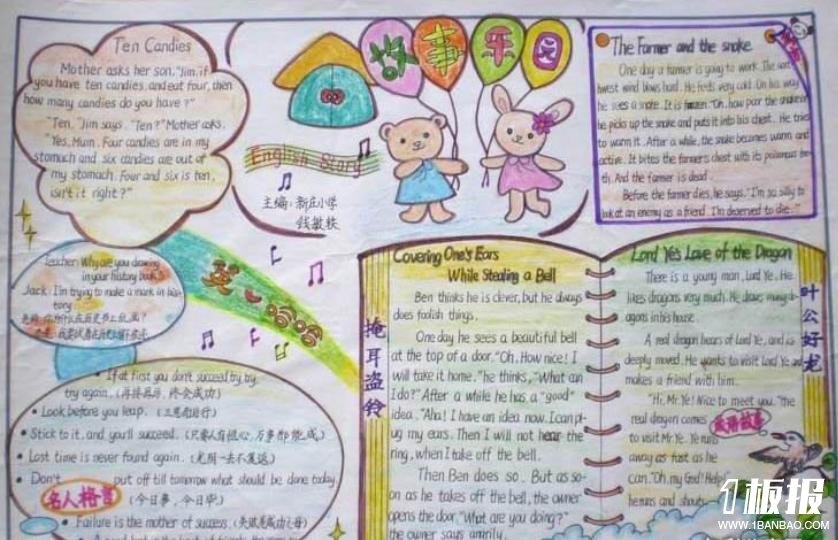 Ten Candies
Mother asks her son, "Jim, if
you have ten candies, and eat four, then
how many candies do you have?"
"Ten," Jim says. "Ten?" Mother asks.
"Yes, Mum. Four candies are in my
stomach and six candies are out of
my stomach. Four and six is ten,
isn't it right?"
故事乐园
English Story
主编：新庄小学
钱敏轶
The Farmer and the snake
One day a farmer is going to work. The
west wind blows hard. He feels very cold. On his way
he sees a snake. It is frozen. "Oh, how poor the snake is"
he picks up the snake and puts it into his chest. He tries
to warm it. After a while, the snake becomes warm and
active. It bites the farmer's chest with its poisonous tee-
th. And the farmer is dead.
Before the farmer dies, he says, "I'm so silly to
look at an enemy as a friend. I'm deserved to die."
Teacher: Why are you drawing
in your history book?
Jack: I'm trying to make a mark in his-
tory.
英哈哈
If at first you don't succeed try, try
try again. (再接再厉，终会成功)
Look before you leap. (三思而后行)
Stick to it, and you'll succeed. (只要人有恒心，万事都能成)
Lost time is never found again. (光阴一去不复返)
Don't put off till tomorrow what should be done today.
名人格言
(今日事，今日毕)
Failure is the mother of success. (失败是成功之母)
Covering One's Ears
While Stealing a Bell
掩耳盗铃
Ben thinks he is clever, but he always
does foolish things.
One day he sees a beautiful bell
at the top of a door. "Oh, How nice! I
will take it home," he thinks, "What can
I do?" After a while he has a "good"
idea. "Aha! I have an idea now. I can pl-
ug my ears. Then I will not hear the
ring, when I take off the bell.
Then Ben does so. But as so-
on as he takes off the bell, the owner
opens the door. "What are you doing?"
the owner says angrily.
Lord Ye's Love of the Dragon
叶公好龙
There is a young man, Lord Ye. He
likes dragons very much. He draws many dr-
agons in his house.
A real dragon hears of Lord Ye, and is
deeply moved. He wants to visit Lord Ye and
makes a friend with him.
"Hi, Mr. Ye! Nice to meet you, "the
real dragon comes
成语故事
to visit Mr. Ye. Ye runs
away as fast as he
can. "Oh, my God! Help!"
he runs and shouts.
1板报
WWW.1BANBAO.COM